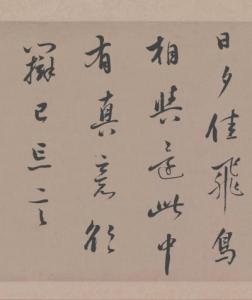 日夕佳飛鳥
相與還此中
有真意欲
已忘言